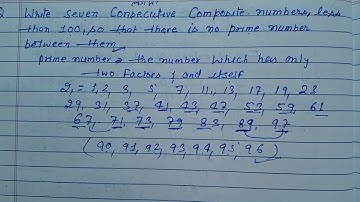 Q Write seven Consecutive Composite numbers, less
than 100, so that there is no prime number
between them
prime number = the number which has only
two factors 1 and itself
2, = 1, 2, 3, 5, 7, 11, 13, 17, 19, 23
29, 31, 37, 41, 43, 47, 53, 59, 61
67, 71, 73, 79, 83, 89, 97
(90, 91, 92, 93, 94, 95, 96)